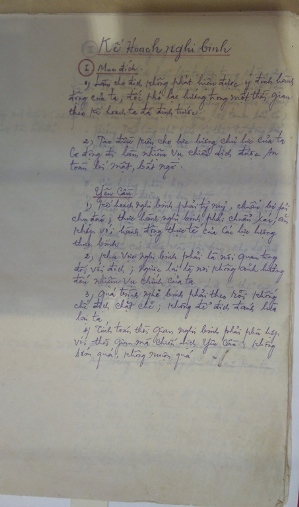 Kế hoạch nghi binh
I Mục đích
1, Làm cho địch không phát hiện được ý định hành
động của ta, đối phó lúng túng trong một thời gian
theo kế hoạch ta đã định trước.
2, Tạo điều kiện cho lực lượng chủ lực của ta
cơ động đi làm nhiệm vụ chiến dịch được an
toàn bí mật, bất ngờ.
Yêu cầu
1, Kế hoạch nghi binh phải tỷ mỷ, chuẩn bị phải
chu đáo, thực hành nghi binh phải chuẩn xác, ăn
khớp với hành động thực tế của các lực lượng
nghi binh.
2, khu vực nghi binh phải là nơi quan trọng
đối với địch, ngược lại là nơi không ảnh hưởng
đến nhiệm vụ chính của ta
3, Quá trình nghi binh phải theo dõi, khống
chế địch chặt chẽ, không để địch đánh
lại ta,
4, Tính toán thời gian nghi binh phải phù hợp
với thời gian mà chiến dịch yêu cầu, không
sớm quá, không muộn quá